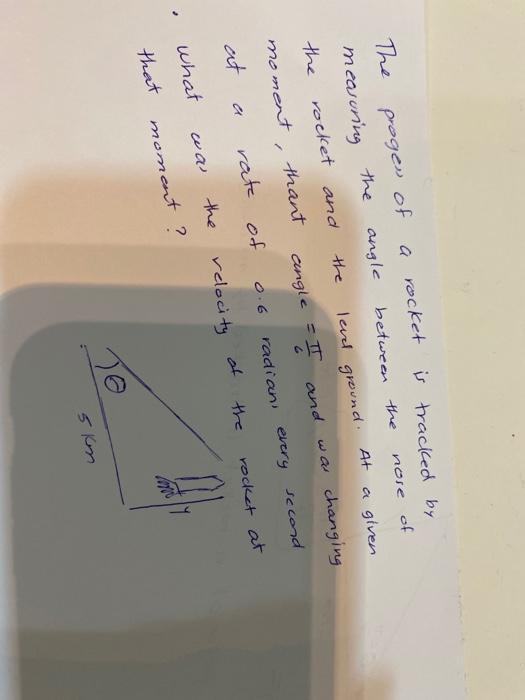 The progess of a rocket is tracked by
measuring the angle between the nose of
the rocket and the level ground. At a given
moment, thant angle = π/6 and was changing
at a rate of 0.6 radians every second
. what was the velocity of the rocket at
that moment?
y
θ
5 km